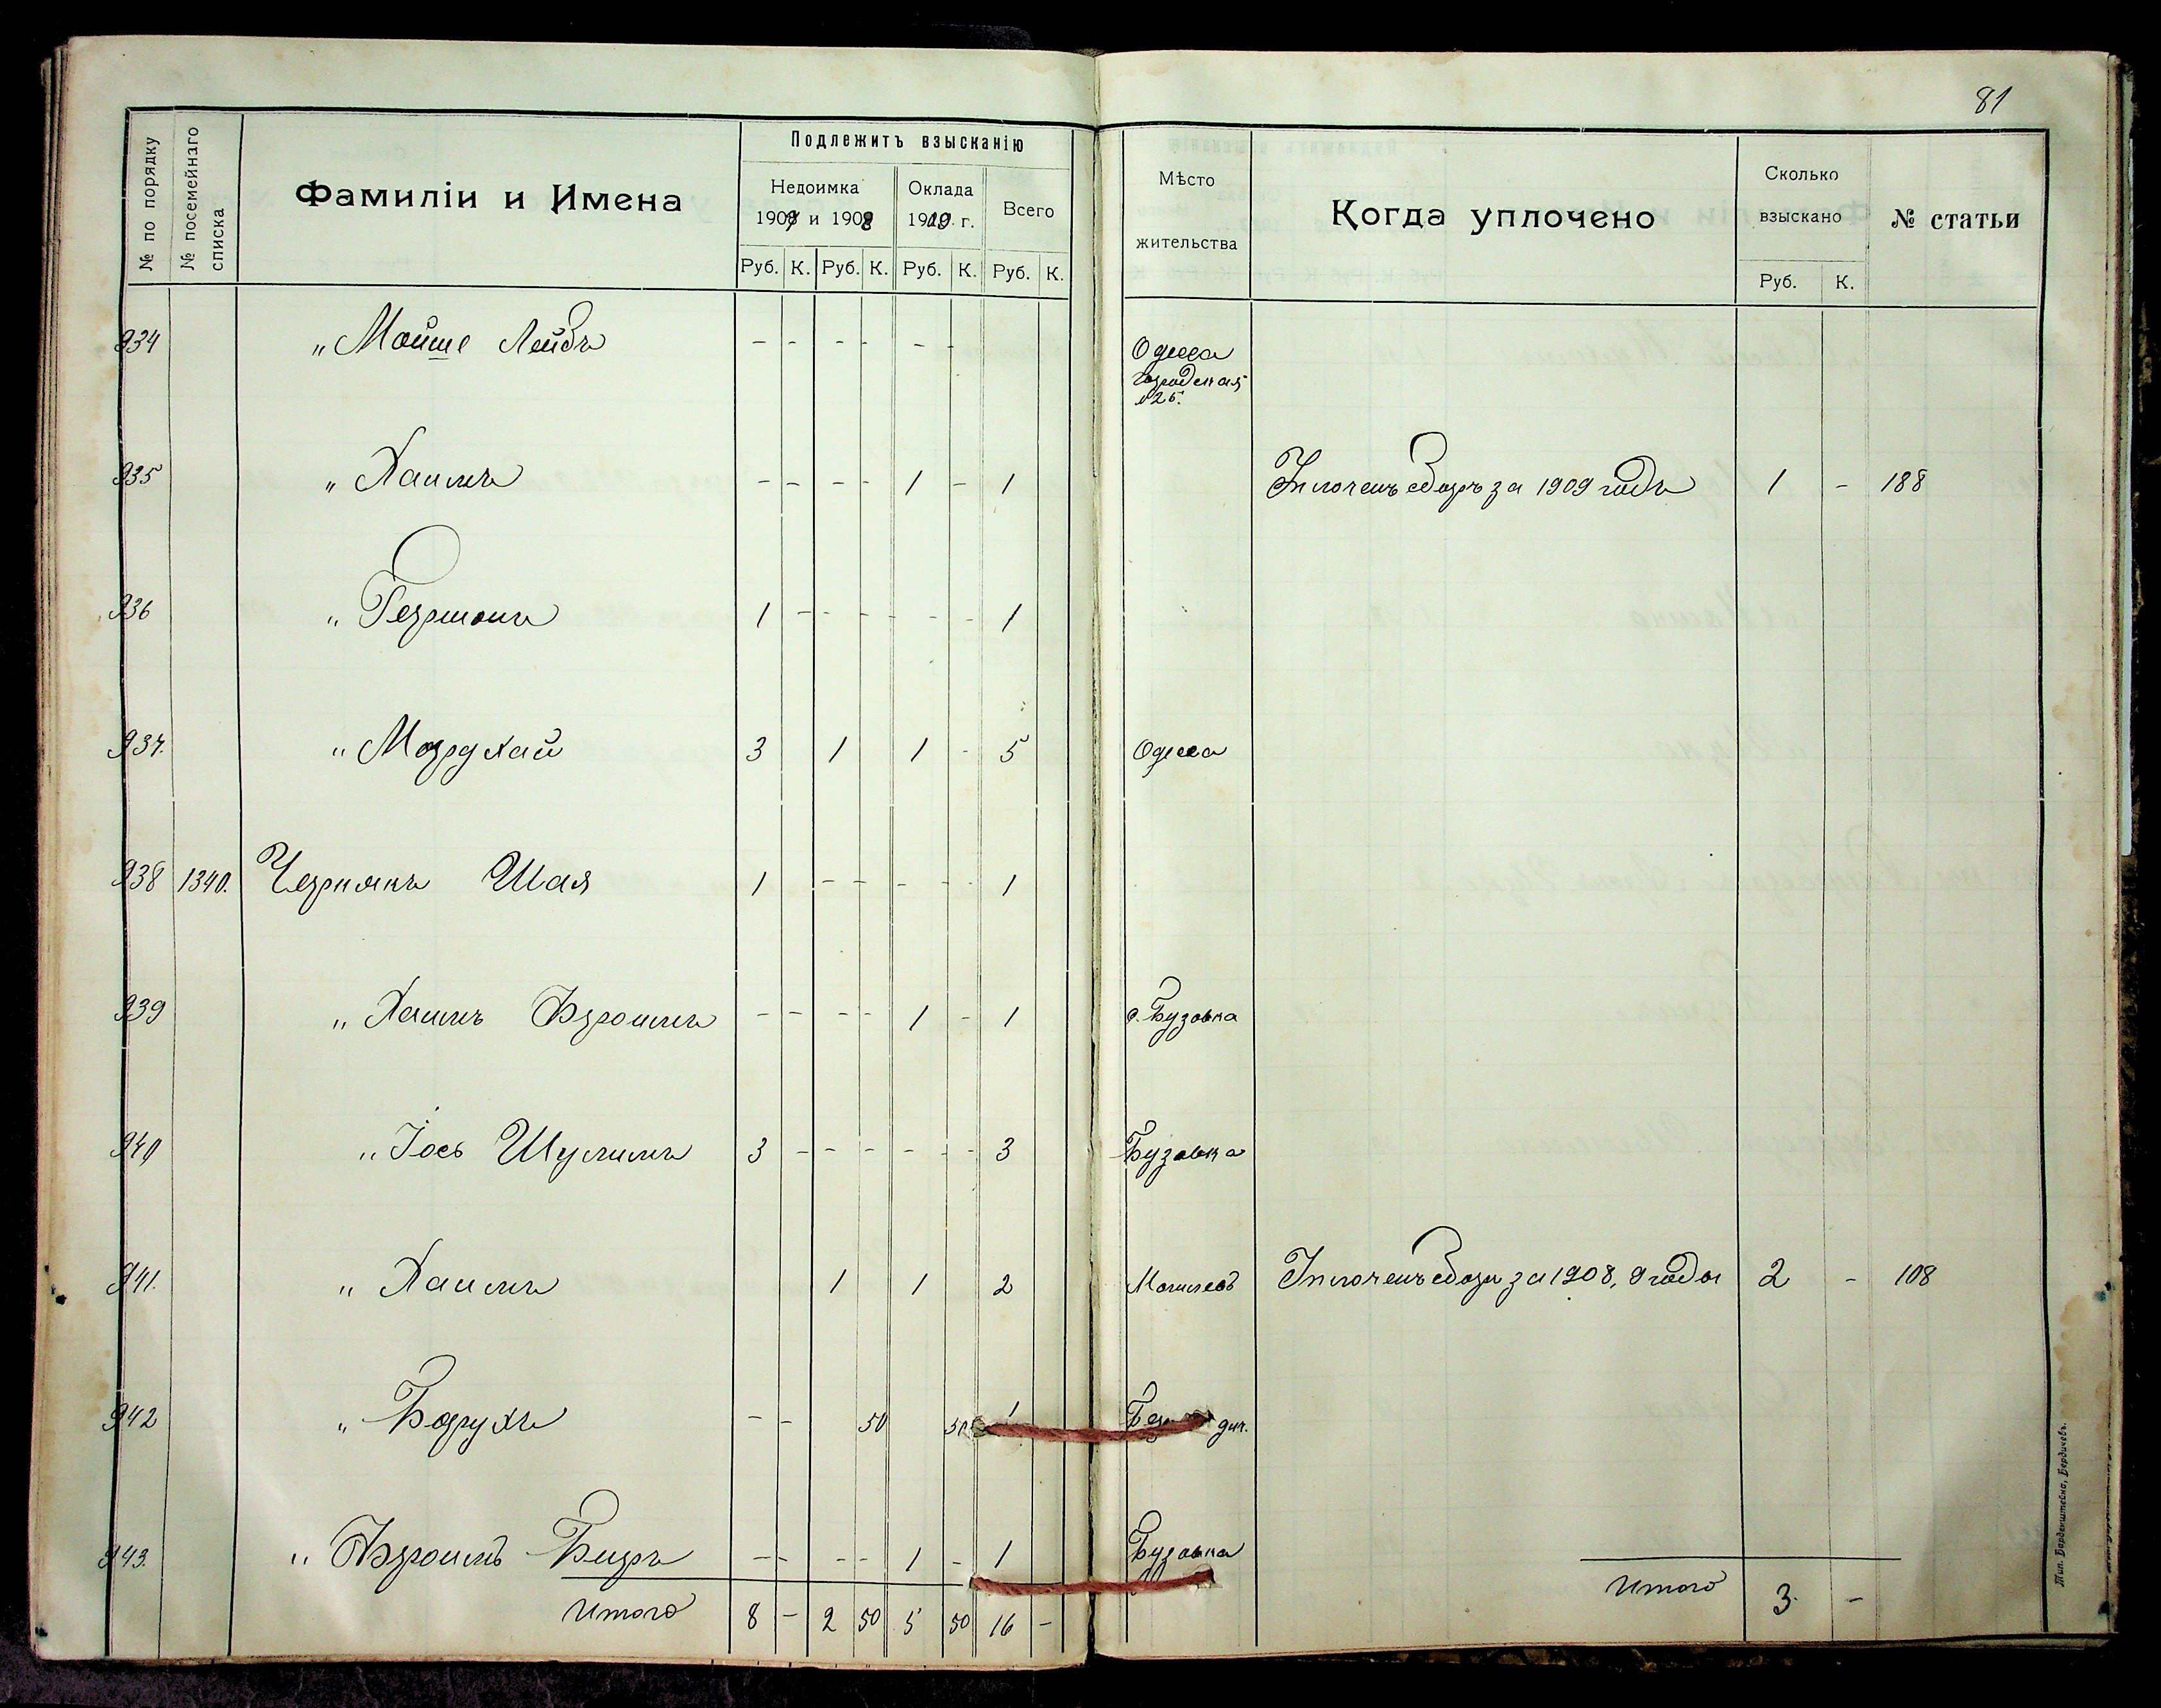 81
№ по порядку
№ посемейнаго списка
Фамиліи и Имена
Подлежитъ взысканію
Недоимка
1907 и 1908
Оклада
1909 г.
Всего
Руб. К. Руб. К. Руб. К. Руб. К.
Мѣсто
жительства
Когда уплочено
Сколько
взыскано
Руб. К.
№ статьи
934 " Мойше Лейбъ - - - - - - Одесса
Городская
№25.
935 " Хаимъ - - - - 1 - 1 Уплоченъ сборъ за 1909 годъ 1 - 188
936 " Гершонъ 1 - - - - - - 1
937. " Мордхай 3 1 1 - 5 Одесса
938 1340. Чернякъ Шая 1 - - - - - 1
939 " Хаимъ Аврошмъ - - - - 1 - 1 с. Бузовка
940 " Іось Шулимъ 3 - - - - - - 3 Бузовка
941. " Хаимъ 1 1 2 Могилевъ Уплоченъ сборъ за 1908, 9 годы 2 - 108
942 " Борухъ - - 50 50 1
943. " Аврошмъ Беръ - - - - 1 - 1 Бузовка
Итого 8 - 2 50 5 50 16 -
Итого 3. -
Тип. Барденштейна, Бердичевъ.